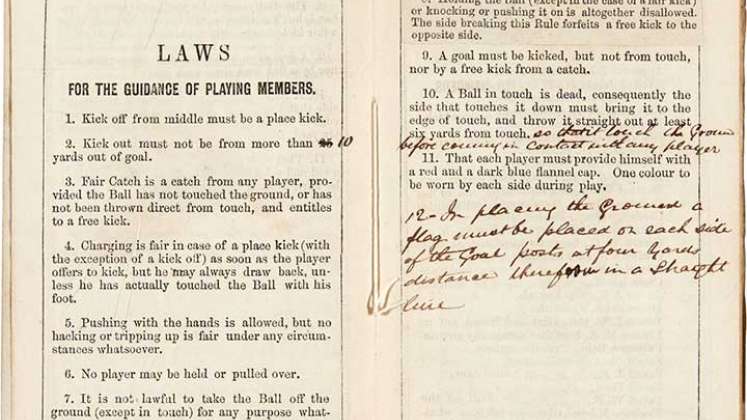 LAWS
FOR THE GUIDANCE OF PLAYING MEMBERS.
1. Kick off from middle must be a place kick.
2. Kick out must not be from more than 25 10
yards out of goal.
3. Fair Catch is a catch from any player, pro-
vided the Ball has not touched the ground, or has
not been thrown direct from touch, and entitles
to a free kick.
4. Charging is fair in case of a place kick (with
the exception of a kick off) as soon as the player
offers to kick, but he may always draw back, un-
less he has actually touched the Ball with his
foot.
5. Pushing with the hands is allowed, but no
hacking or tripping up is fair under any circum-
stances whatsoever.
6. No player may be held or pulled over.
7. It is not lawful to take the Ball off the
ground (except in touch) for any purpose what-
8. Holding the Ball (except in the case of a free kick)
or knocking or pushing it on is altogether disallowed.
The side breaking this Rule forfeits a free kick to the
opposite side.
9. A goal must be kicked, but not from touch,
nor by a free kick from a catch.
10. A Ball in touch is dead, consequently the
side that touches it down must bring it to the
edge of touch, and throw it straight out at least
six yards from touch, so that it touch the Ground
before coming in contact with any player
11. That each player must provide himself with
a red and a dark blue flannel cap. One colour to
be worn by each side during play.
12- In placing the Ground a
flag must be placed on each side
of the Goal posts at four Yards
distance therefrom in a Straight
line